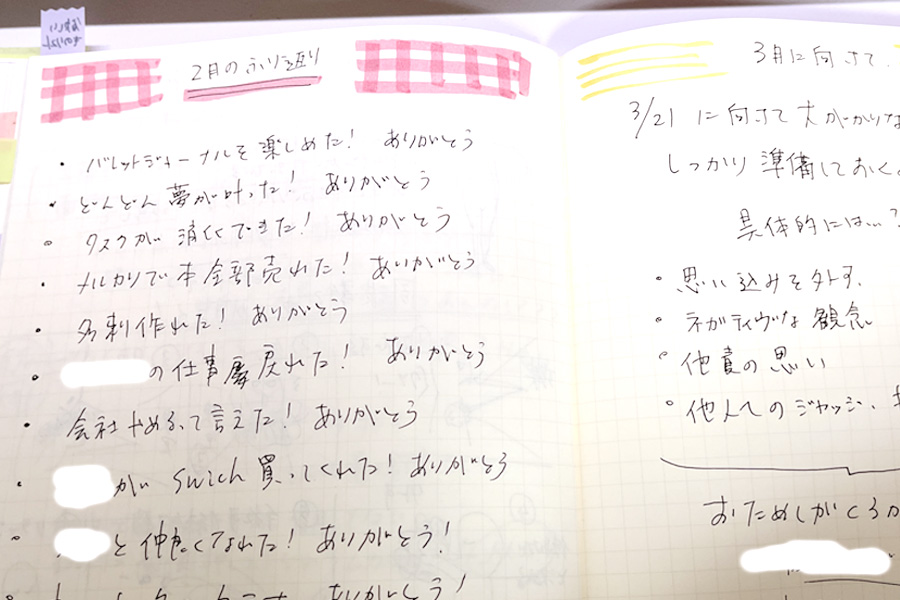 2月のふり返り
・バレットジャーナルを楽しめた! ありがとう
・どんどん夢が叶った! ありがとう
・タスクが消化できた! ありがとう
・メルカリで本全部売れた! ありがとう
・名刺作れた! ありがとう
・の仕事 戻れた! ありがとう
・会社やめるって言えた! ありがとう
・が Swich 買ってくれた! ありがとう
・と仲良くなれた! ありがとう!
ありがとう!
3月に向けて
3/21 に向けて大がかりな
しっかり準備しておく
具体的には…?
・思い込みを外す.
・ネガティヴな観念
・他責の思い
・他人へのジャッジ、
おためしがくる